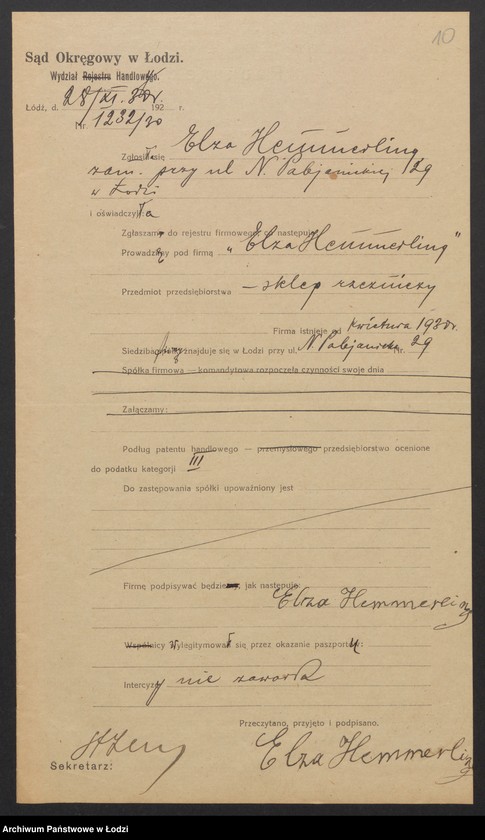 10
Sąd Okręgowy w Łodzi.
Wydział Rejestru Handlowego.
Łódź, d. 28/XI. 30 r. 192 r.
Nr. 1232/30
Zgłosiła się Elza Hemmerling
zam. przy ul N. Pabjanickiej 29
w Łodzi
i oświadczyła:
Zgłaszam do rejestru firmowego, co następuje:
Prowadzę pod firmą „Elza Hemmerling"
Przedmiot przedsiębiorstwa – sklep rzeźniczy
Firma istnieje od kwietnia 1930 r.
Siedziba firmy znajduje się w Łodzi przy ul. N. Pabjanicka Nr. 29
Spółka firmowa — komandytowa rozpoczęła czynności swoje dnia
Załączamy:
Podług patentu handlowego — przemysłowego przedsiębiorstwo ocenione
do podatku kategorji III
Do zastępowania spółki upoważniony jest
Firmę podpisywać będzie, jak następuje:
Elza Hemmerling
Wspólnicy Wylegitymował się przez okazanie paszportu:
Intercyzy nie zawarła
Przeczytano, przyjęto i podpisano.
Sekretarz:
Elza Hemmerling
Archiwum Państwowe w Łodzi